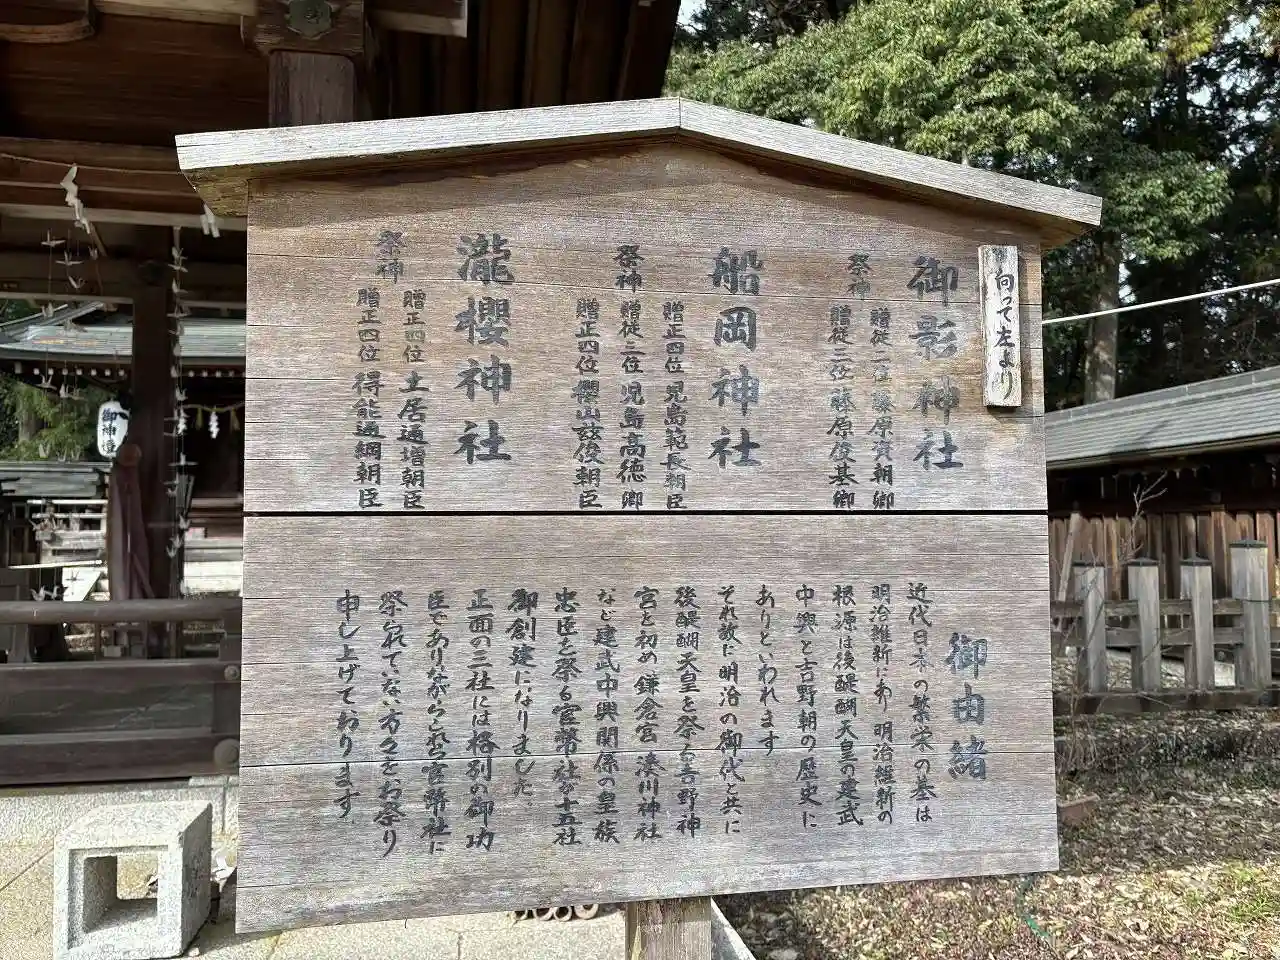 向って左より
御影神社
祭神
贈従二位藤原資朝卿
贈従三位藤原俊基卿
船岡神社
祭神
贈正四位児島範長朝臣
贈従三位児島高徳卿
贈正四位櫻山茲俊朝臣
瀧櫻神社
祭神
贈正四位土居通増朝臣
贈正四位得能通綱朝臣
御由緒
近代日本の繁栄の基は
明治維新にあり明治維新の
根源は後醍醐天皇の建武
中興と吉野朝の歴史に
ありといわれます
それ故に明治の御代と共に
後醍醐天皇を祭る吉野神
宮を初め鎌倉宮湊川神社
など建武中興関係の皇族
忠臣を祭る官幣社が十五社
御創建になりました
正面の三社には格別の御功
臣でありながらこれら官幣社に
祭られていない方々をお祭り
申し上げております
御神燈